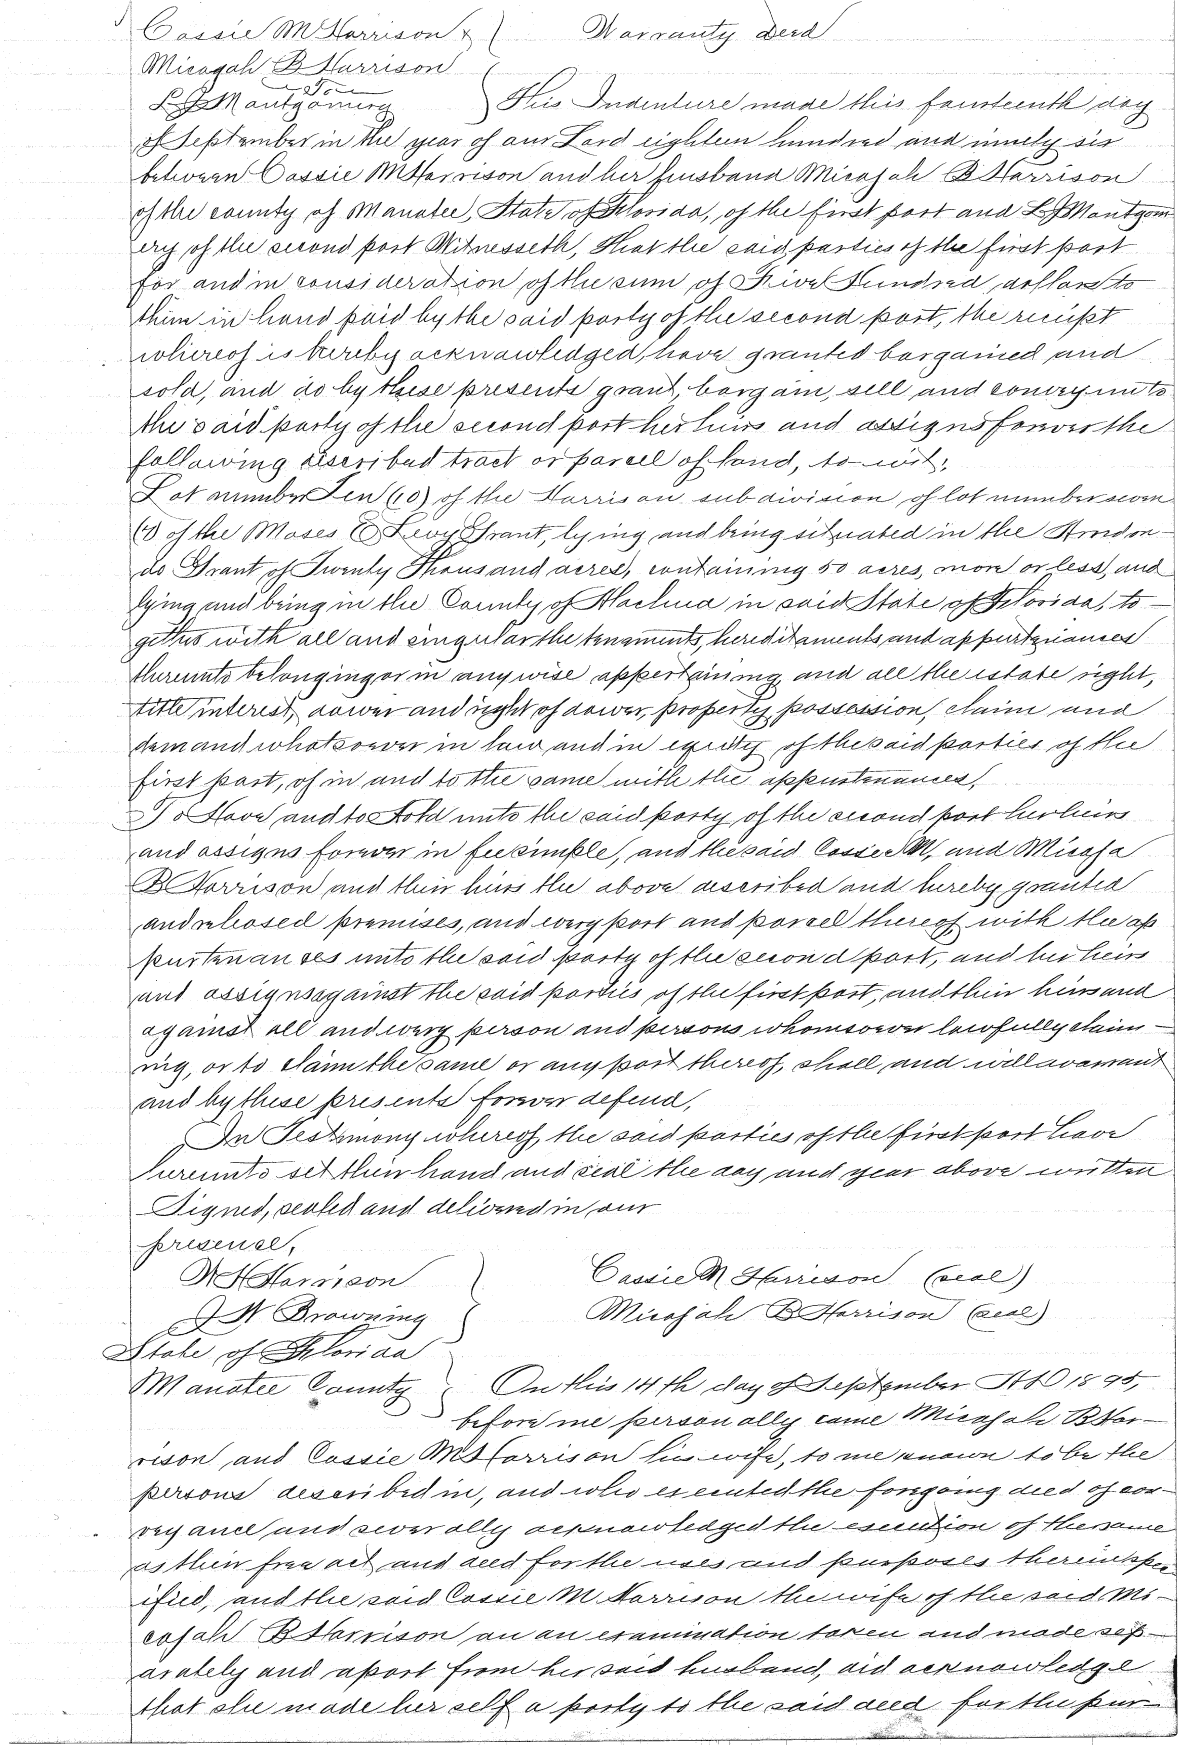 Cassie M Harrison & ) Warranty Deed
Micajah B Harrison
To
L J Montgomery ) This Indenture made this fourteenth day
of September in the year of our Lord eighteen hundred and ninety six
between Cassie M Harrison and her husband Micajah B Harrison
of the county of Manatee, State of Florida, of the first part and L J Montgom
ery of the second part Witnesseth, That the said parties of the first part
for and in consideration of the sum of Five Hundred dollars to
them in hand paid by the said party of the second part, the receipt
whereof is hereby acknowledged, have granted bargained and
sold, and do by these presents grant, bargain, sell and convey unto
the said party of the second part her heirs and assigns forever the
following described tract or parcel of land, to-wit;
Lot number Ten (10) of the Harrison subdivision of lot number seven
(7) of the Moses E Levy Grant, lying and being situated in the Arredon-
do Grant of Twenty Thousand acres, containing 50 acres, more or less, and
lying and being in the County of Alachua in said State of Florida, to-
gether with all and singular the tenements, hereditaments and appurtenances
thereunto belonging or in anywise appertaining and all the estate right,
title interest, dower and right of dower, property possession, claim and
demand whatsoever in law and in equity of the said parties of the
first part, of in and to the same with the appurtenances,
To Have and to Hold unto the said party of the second part her heirs
and assigns forever in fee simple, and the said Cassie M, and Micaja
B Harrison and their heirs the above described and hereby granted
and released premises, and every part and parcel thereof, with the ap
purtenances unto the said party of the second part, and her heirs
and assigns against the said parties of the first part, and their heirs and
against all and every person and persons whomsoever lawfully claim-
ing, or to claim the same or any part thereof, shall and will warrant
and by these presents forever defend,
In Testimony whereof, the said parties of the first part have
hereunto set their hand and seal the day and year above written
Signed, sealed and delivered in our
presence,
W H Harrison ) Cassie M Harrison (seal)
J W Browning ) Micajah B Harrison (seal)
State of Florida
Manatee County ) On this 14th day of September A D 1896,
before me personally came Micajah B Har-
rison and Cassie M Harrison his wife, to me known to be the
persons described in, and who executed the foregoing deed of con-
veyance and severally acknowledged the execution of the same
as their free act and deed for the uses and purposes therein spec
ified, and the said Cassie M Harrison the wife of the said Mi-
cajah B Harrison on an examination taken and made sep-
arately and apart from her said husband, did acknowledge
that she made her self a party to the said deed for the pur